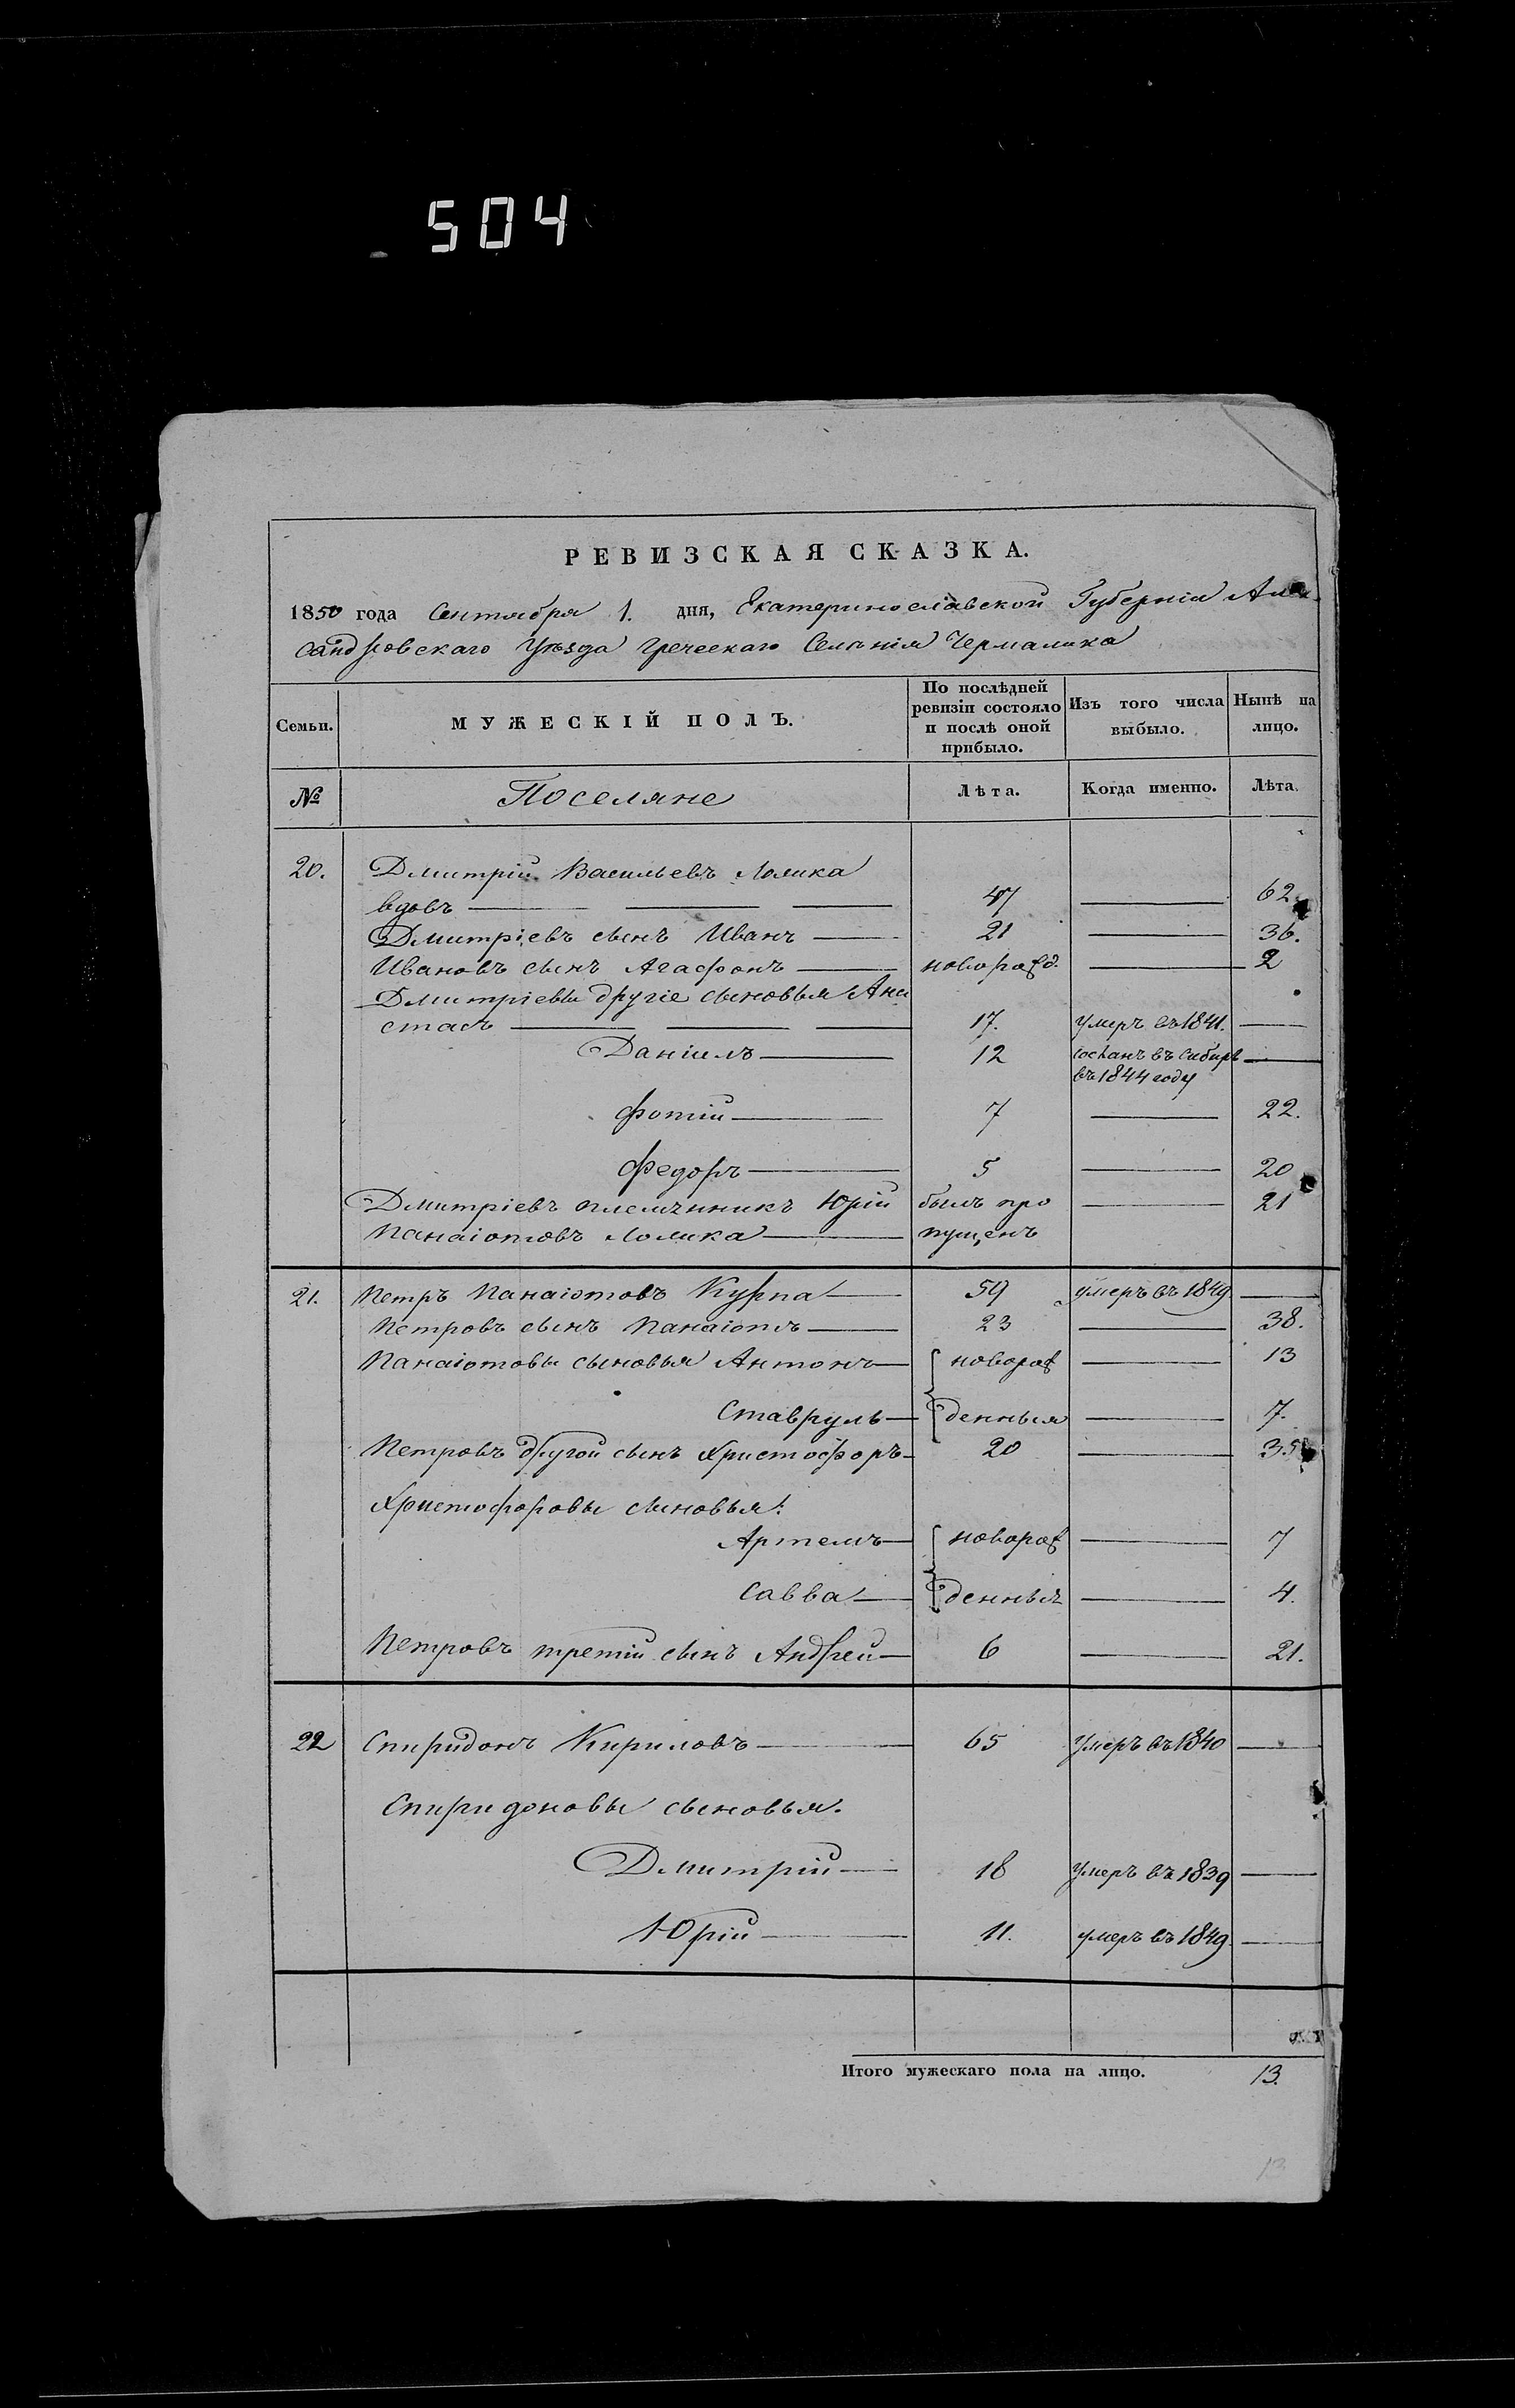 504
РЕВИЗСКАЯ СКАЗКА.
1850 года Сентября 1. дня, Екатеринославской Губерніи Алек
сандровскаго Уѣзда Греческаго Селенія Чермалика
Семьи. МУЖЕСКІЙ ПОЛЪ. По послѣдней ревизіи состояло и послѣ оной прибыло. Изъ того числа выбыло. Нынѣ на лицо.
№ Поселяне Лѣта. Когда именно. Лѣта.
20. Дмитрій Васильевъ
вдовъ 47 62
Дмитріевъ сынъ Иванъ 21 36.
Ивановъ сынъ Агафонъ новорожд. 2
Дмитріевы другіе сыновья Ана
стасъ 17. умеръ въ 1841.
Даніилъ 12 сосланъ въ Сибирь
въ 1844 году
Фотій 7 22.
Федоръ 5 20
Дмитріевъ племянникъ Юрій былъ про 21
Панаіотовъ пущенъ
21. Петръ Панаіотовъ Курпа 59 умеръ въ 1849
Петровъ сынъ Панаіотъ 23 38.
Панаіотовы сыновья Антонъ новорож 13
Ставруль денныя 7.
Петровъ другой сынъ Христофоръ 20 35
Христофоровы сыновья:
Артемъ новорож 7
Савва денныя 4.
Петровъ третій сынъ Андрей 6 21.
22 Спиридонъ Кириловъ 65 умеръ въ 1840
Спиридоновы сыновья.
Дмитрій 18 умеръ въ 1839
Юрій 11. умеръ въ 1849
Итого мужескаго пола на лицо. 13.
13